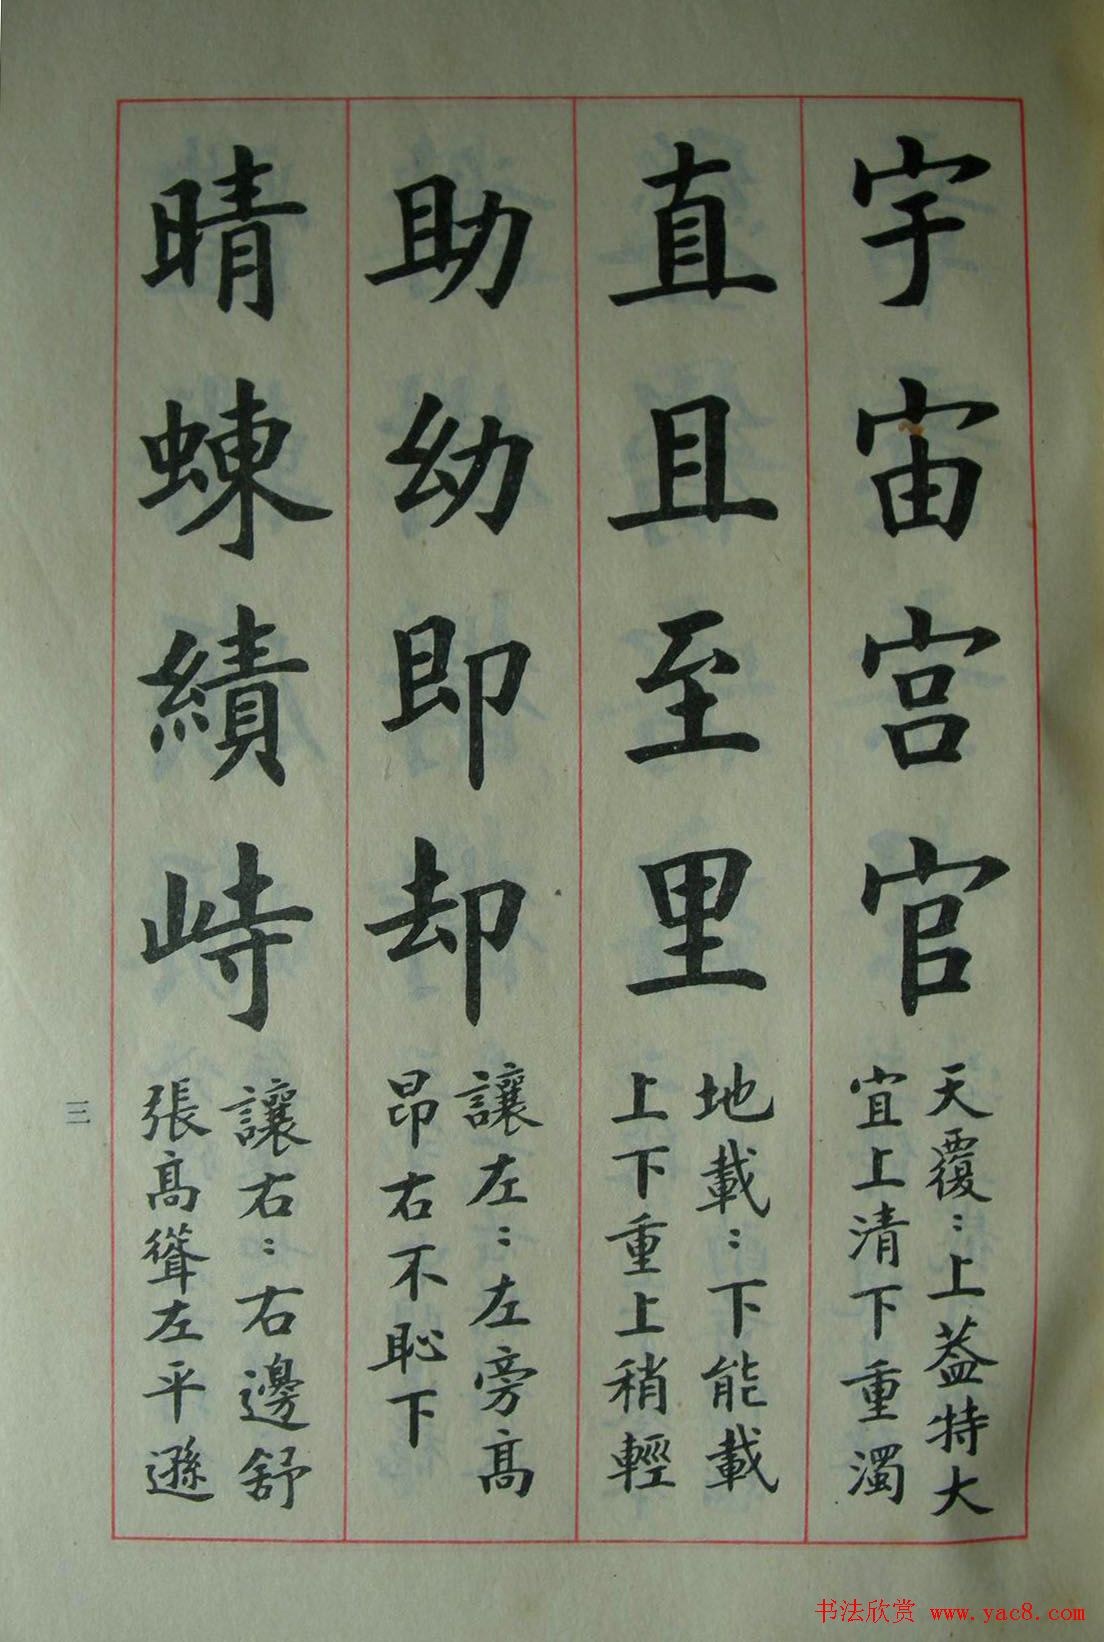 宇宙宮官
天覆：上蓋特大
宜上清下重濁
直且至里
地載：下能載
上下重上稍輕
助幼即却
讓左：左旁高
昂右不恥下
晴蝀績峙
讓右：右邊舒
張高聳左平遜
三
书法欣赏 www.yac8.com